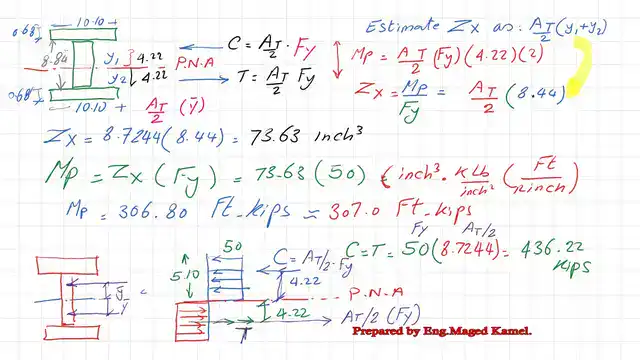 10.10
0.68"
8.84
y1 4.22
y2 4.22
P.N.A
0.68"
10.10
AT/2 (ȳ)
C = AT/2 . Fy
T = AT/2 Fy
Estimate Zx as: AT/2 (y1+y2)
Mp = AT/2 (Fy)(4.22)(2)
Zx = Mp/Fy = AT/2 (8.44)
Zx = 8.7244(8.44) = 73.63 inch³
Mp = Zx (Fy) = 73.63 (50)
inch³. Klb/inch² (Ft/12inch)
Mp = 306.80 Ft_kips ≈ 307.0 Ft_kips
Fy AT/2
C=T= 50(8.7244)= 436.22 Kips
50
C = AT/2. Fy
5.10
4.22
P.N.A
4.22
AT/2 (Fy)
T
Prepared by Eng.Maged Kamel.